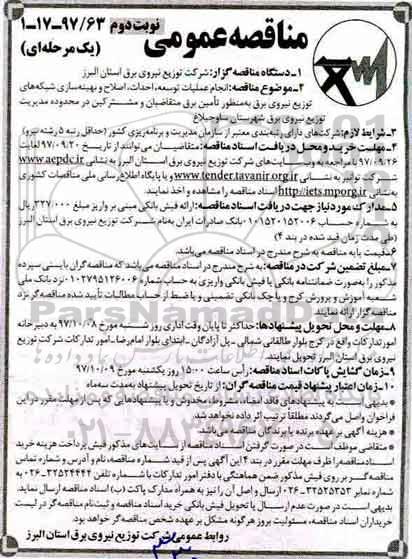 نوبت دوم ۹۷/۶۳-۱۷-۱
مناقصه عمومی
(یک مرحله‌ای)
۱-دستگاه مناقصه گزار: شرکت توزیع نیروی برق استان البرز
۲-موضوع مناقصه: انجام عملیات توسعه، احداث، اصلاح و بهینه‌سازی شبکه‌های
توزیع نیروی برق به‌منظور تأمین برق متقاضیان و مشترکین در محدوده مدیریت
توزیع نیروی برق شهرستان ساوجبلاغ
۳-شرایط لازم: شرکت‌های دارای رتبه‌بندی معتبر از سازمان مدیریت و برنامه‌ریزی کشور (حداقل رتبه ۵ رشته نیرو)
۴-مهلت خرید و محل دریافت اسناد مناقصه: متقاضیان می‌توانند از تاریخ ۹۷/۰۹/۲۰ لغایت
۹۷/۰۹/۲۶ با مراجعه به وب‌سایت‌های شرکت توزیع نیروی برق استان البرز به نشانی www.aepdc.ir
شرکت توانیر به نشانی www.tender.tavanir.org.ir و یا پایگاه اطلاع‌رسانی ملی مناقصات کشوری
به‌نشانی http://iets.mporg.ir اسناد مناقصه را مشاهده و اخذ نمایند.
۵-مدارک مورد نیاز جهت دریافت اسناد مناقصه: ارائه فیش بانکی مبنی بر واریز مبلغ ۳۲۷/۰۰۰ ریال
به شماره حساب ۰۱۰۱۵۲۰۱۵۲۰۰۶ بانک صادرات ایران به‌نام شرکت توزیع نیروی برق استان البرز
(طی مدت زمان قید شده در بند ۴)
۶-قیمت پایه مناقصه به شرح مندرج در اسناد مناقصه می‌باشد.
۷-مبلغ تضمین شرکت در مناقصه: به شرح مندرج در اسناد مناقصه می‌باشد که مناقصه گران بایستی سپرده
مذکور را به‌صورت ضمانتنامه بانکی یا فیش بانکی واریزی به حساب شماره ۰۱۰۲۷۹۵۱۲۶۰۰۶ نزد بانک ملی
شعبه آموزش و پرورش کرج و یا چک بانکی تضمینی و یا ضبط از حساب مطالبات تأیید شده مناقصه گر نزد
مناقصه گزار ارائه نمایند.
۸-مهلت و محل تحویل پیشنهادها: حداکثر تا پایان وقت اداری روز شنبه مورخ ۹۷/۱۰/۰۸ به دبیرخانه
امور تدارکات واقع در کرج بلوار طالقانی شمالی -پل آزادگان -ابتدای بلوار امام رضا-امور تدارکات شرکت توزیع
نیروی برق استان البرز تحویل نمایند.
۹-زمان گشایش پاکات اسناد مناقصه: رأس ساعت ۱۵:۰۰ روز یکشنبه مورخ ۹۷/۱۰/۰۹
۱۰-زمان اعتبار پیشنهاد قیمت مناقصه گران: از تاریخ تحویل پیشنهاد به‌مدت سه‌ماه
* بدیهی است پیشنهادهای فاقد امضاء، مشروط، مخدوش و یا پیشنهادهایی که پس از مهلت مقرر در این
فراخوان واصل می‌گردند مطلقاً ترتیب اثر داده نخواهد شد.
* هزینه آگهی بر عهده برنده یا برندگان مناقصه می‌باشد.
* متقاضی موظف است در صورت گرفتن اسناد مناقصه از سایت‌های مذکور فیش پرداخت هزینه خرید
اسناد مناقصه را ظرف مهلت مقرر در بند ۴ این آگهی پس از قید شماره مناقصه نام و آدرس و شماره تماس
مناقصه گر بر روی فیش مذکور ضمن هماهنگی با دفتر امور تدارکات با شماره تلفن ۳۲۵۲۴۴۴۲-۰۲۶ به
شماره نمابر ۳۲۵۲۵۳۵۳-۰۲۶ ارسال و اصل آن را نیز به همراه مدارک پاکت (ب) اسناد مناقصه ارسال نماید.
بدیهی است در صورت عدم ارسال یا تحویل فیش بانکی خرید اسناد مناقصه و ثبت‌نام مناقصه گر در لیست
خریداران اسناد مناقصه، مسئولیت بروز هرگونه مشکل بر عهده شخص مناقصه گر خواهد بود.
روابط عمومی شرکت توزیع نیروی برق استان البرز
ParsNamadData